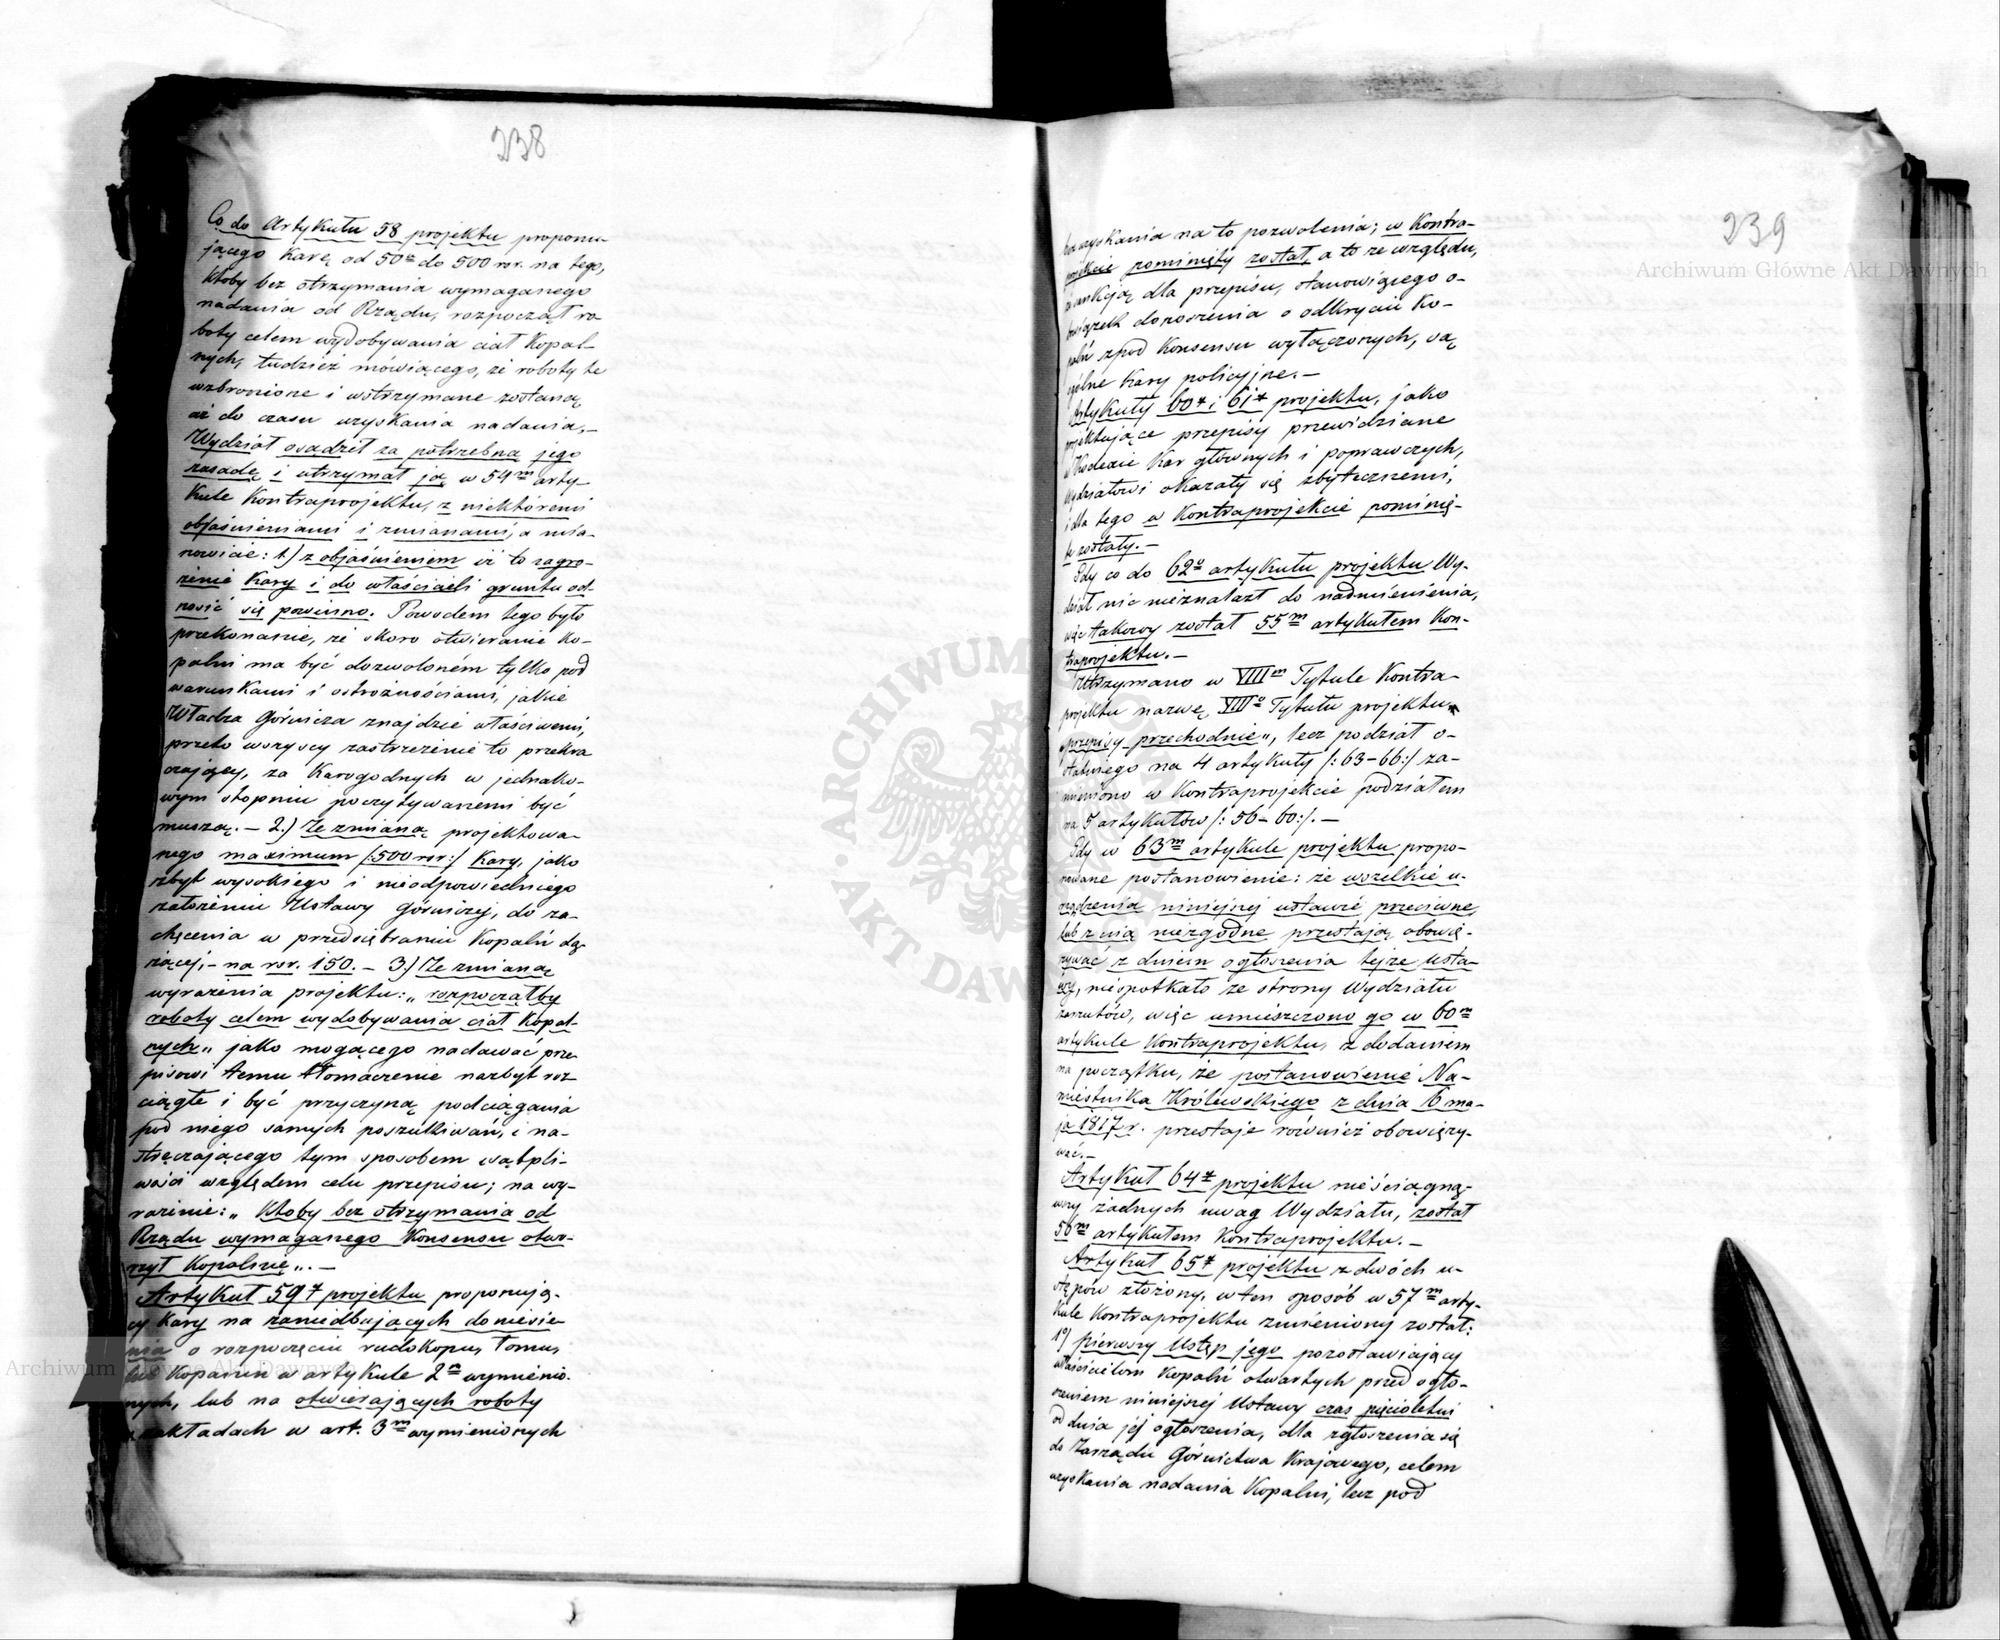 238
Co do Artykułu 58 projektu proponu-
jącego karę od 50ciu do 500 rsr. na tego,
ktoby bez otrzymania wymaganego
nadania od Rządu, rozpoczął ro-
boty celem wydobywania ciał kopal-
nych, tudzież mówiącego, że roboty te
wzbronione i wstrzymane zostaną
aż do czasu uzyskania nadania,—
Wydział osądził za potrzebną jego
zasadę i utrzymał ją w 54m arty-
kule Kontraprojektu, z niektóremi
objaśnieniami i zmianami, a mia-
nowicie: 1.) z objaśnieniem iż to zagro-
żenie kary i do właścicieli gruntu od-
nosić się powinno. Powodem tego było
przekonanie, że skoro otwieranie ko-
palni ma być dozwoloném tylko pod
warunkami i ostrożnościami, jakie
Władza Górnicza znajdzie właściwemi,
przeto wszyscy zastrzeżenie to przekra
czający, za karogodnych w jednako-
wym stopniu poczytywanemi być
muszą. — 2.) Ze zmianą projektowa-
nego maximum /:500 rsr:/ kary, jako
zbyt wysokiego i nieodpowiedniego
założeniu Ustawy Górniczej, do za-
chęcenia w przedsiębraniu kopalń dą-
żącej, — na rsr. 150. — 3.) Ze zmianą
wyrażenia projektu: „rozpocząłby
roboty celem wydobywania ciał kopal-
nych„ jako mogącego nadawać prze-
pisowi temu tłomaczenie nazbyt roz-
ciągłe i być przyczyną podciągania
pod niego samych poszukiwań, i na-
stręczającego tym sposobem wątpli-
wości względem celu przepisu; na wy-
rażenie: „Ktoby bez otrzymania od
Rządu wymaganego Konsensu otwo-
rzył Kopalnię„. —
Artykuł 59ty projektu proponują-
cy kary na zaniedbujących doniesie
nia o rozpoczęciu rudokopu, łomu,
lub kopania w artykule 2m wymienio-
nych, lub na otwierających roboty
zakładach w art. 3m wymienionych
239
bez uzyskania na to pozwolenia; w Kontra-
projekcie pominięty został, a to ze względu,
że sankcją dla przepisu, stanowiącego o-
bowiązek donoszenia o odkryciu ko-
palń zpod Konsensu wyłączonych, są
ogólne kary policyjne. —
Artykuły 60ty i 61ty projektu, jako
projektujące przepisy przewidziane
w Kodexie Kar głównych i poprawczych,
Wydziałowi okazały się zbytecznemi,
i dla tego w Kontraprojekcie pominię-
te zostały. —
Gdy co do 62o artykułu projektu Wy-
dział nic nieznalazł do nadmienienia,
więc takowy został 55m artykułem Kon-
traprojektu. —
Utrzymano w VIIIm Tytule Kontra-
projektu nazwę VIIIo Tytułu projektu „
przepisy przechodnie„, lecz podział o-
statniego na 4 artykuły /:63-66:/ za-
mieniono w Kontraprojekcie podziałem
na 5 artykułów /:56-60:/. —
Gdy w 63m artykule projektu propo-
nowane postanowienie: że wszelkie u-
rządzenia niniejszej ustawie przeciwne,
lub z nią niezgodne przestają obowią-
zywać z dniem ogłoszenia tejże usta-
wy, niespotkało ze strony Wydziału
zarzutów, więc umieszczono go w 60m
artykule Kontraprojektu, z dodaniem
na początku, że postanowienie Na-
miestnika Królewskiego z dnia 6 ma-
ja 1817 r. przestaje również obowiązy-
wać. —
Artykuł 64ty projektu nieściągną-
wszy żadnych uwag Wydziału, został
56m artykułem Kontraprojektu. —
Artykuł 65ty projektu z dwóch u-
stępów złożony, w ten sposób w 57m arty-
kule Kontraprojektu zmieniony został:
1o) pierwszy Ustęp jego pozostawiający
właścicielom kopalń otwartych przed ogło-
szeniem niniejszej Ustawy czas pięcioletni
od dnia jéj ogłoszenia, dla zgłoszenia się
do Zarządu Górnictwa Krajowego, celem
uzyskania nadania Kopalni, lecz pod
Archiwum Główne Akt Dawnych
Archiwum Główne Akt Dawnych
ARCHIWUM
AKT DAW